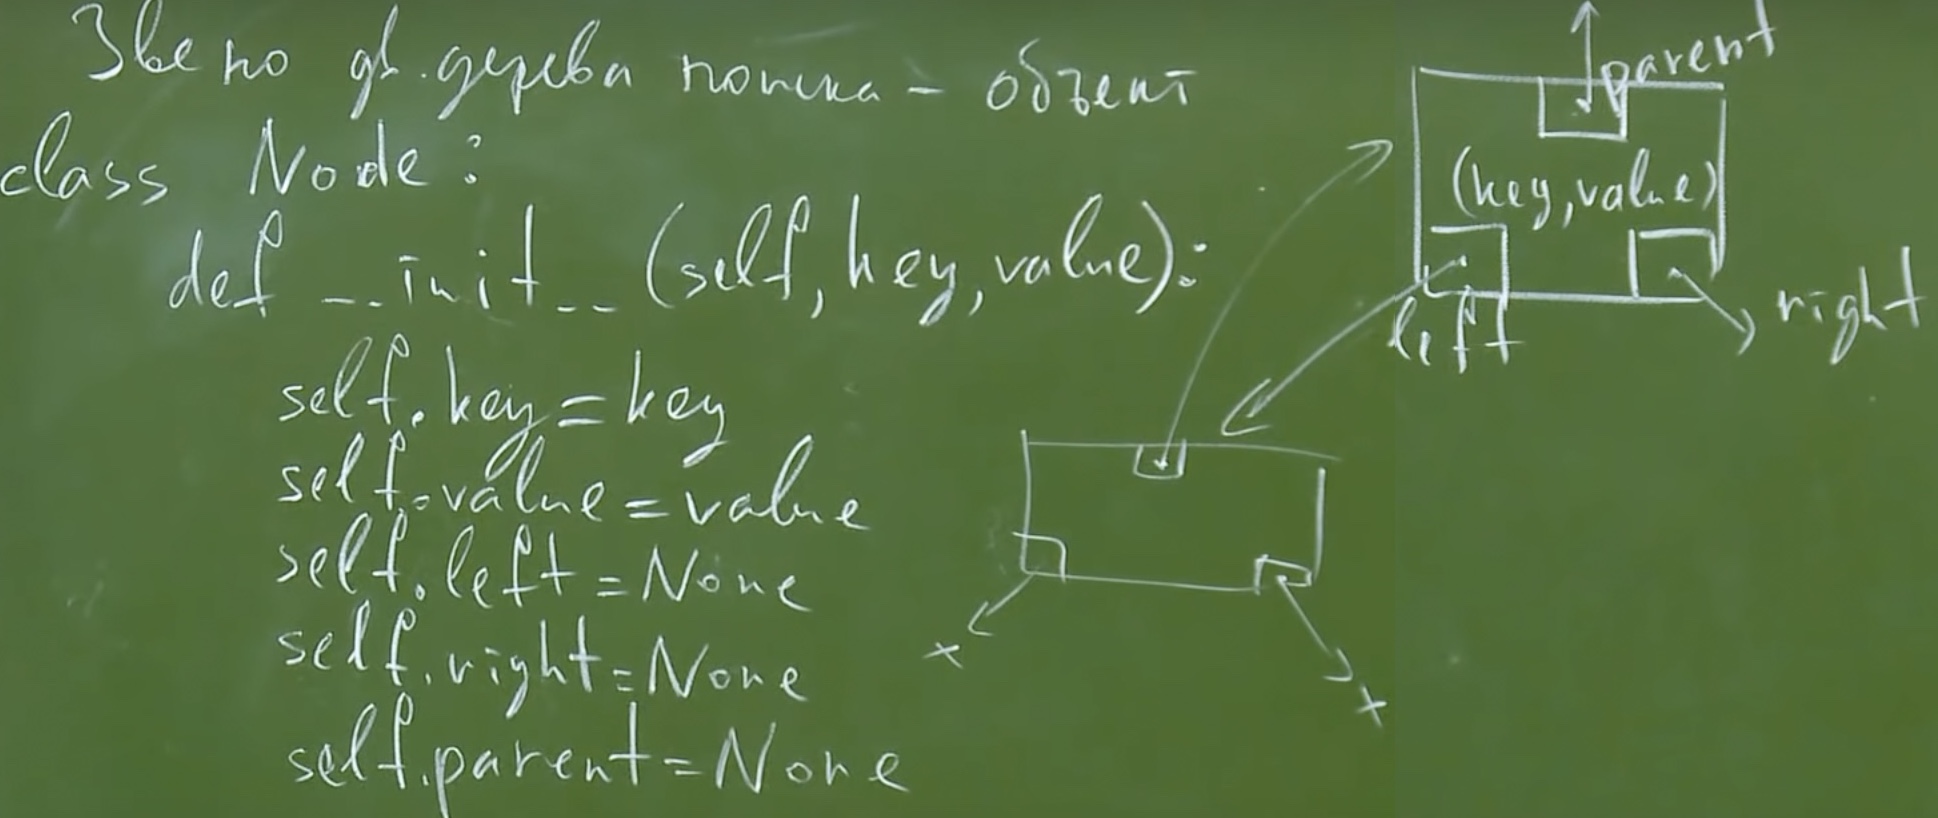 Звено дв. дерева поиска – объект
class Node:
def __init__(self, key, value):
self.key = key
self.value = value
self.left = None
self.right = None
self.parent = None
parent
(key, value)
left
right
x
x